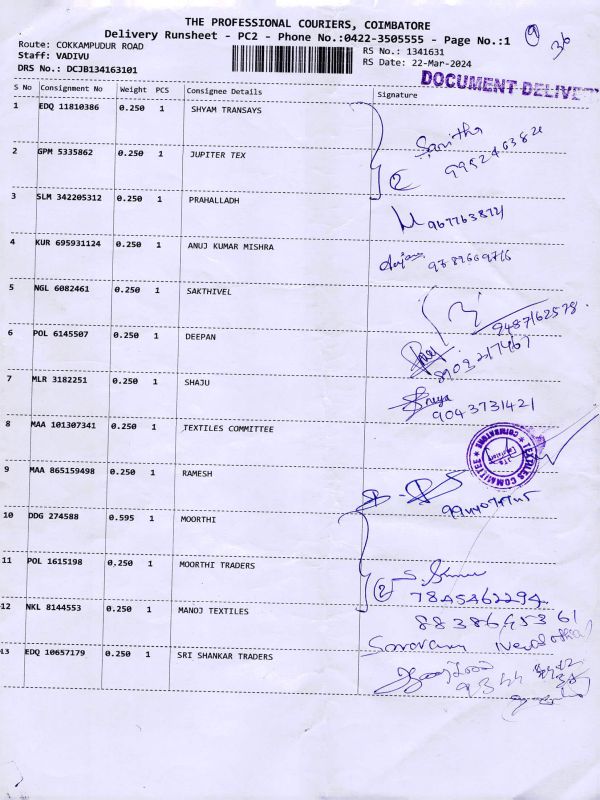 THE PROFESSIONAL COURIERS, COIMBATORE
Delivery Runsheet - PC2 - Phone No.:0422-3505555 - Page No.:1
Route: COKKAMPUDUR ROAD
RS No.: 1341631
Staff: VADIVU
RS Date: 22-Mar-2024
DRS No.: DCJB134163101
DOCUMENT DELIVE
S No Consignment No Weight PCS Consignee Details Signature
1 EDQ 11810386 0.250 1 SHYAM TRANSAYS
2 GPM 5335862 0.250 1 JUPITER TEX
3 SLM 342205312 0.250 1 PRAHALLADH
4 KUR 695931124 0.250 1 ANUJ KUMAR MISHRA
5 NGL 6082461 0.250 1 SAKTHIVEL
9487162578
6 POL 6145507 0.250 1 DEEPAN
7 MLR 3182251 0.250 1 SHAJU
9043731421
8 MAA 101307341 0.250 1 TEXTILES COMMITTEE
TEXTILES COMMITTEE
COIMBATORE
9 MAA 865159498 0.250 1 RAMESH
10 DDG 274588 0.595 1 MOORTHI
11 POL 1615198 0.250 1 MOORTHI TRADERS
12 NKL 8144553 0.250 1 MANOJ TEXTILES
13 EDQ 10657179 0.250 1 SRI SHANKAR TRADERS